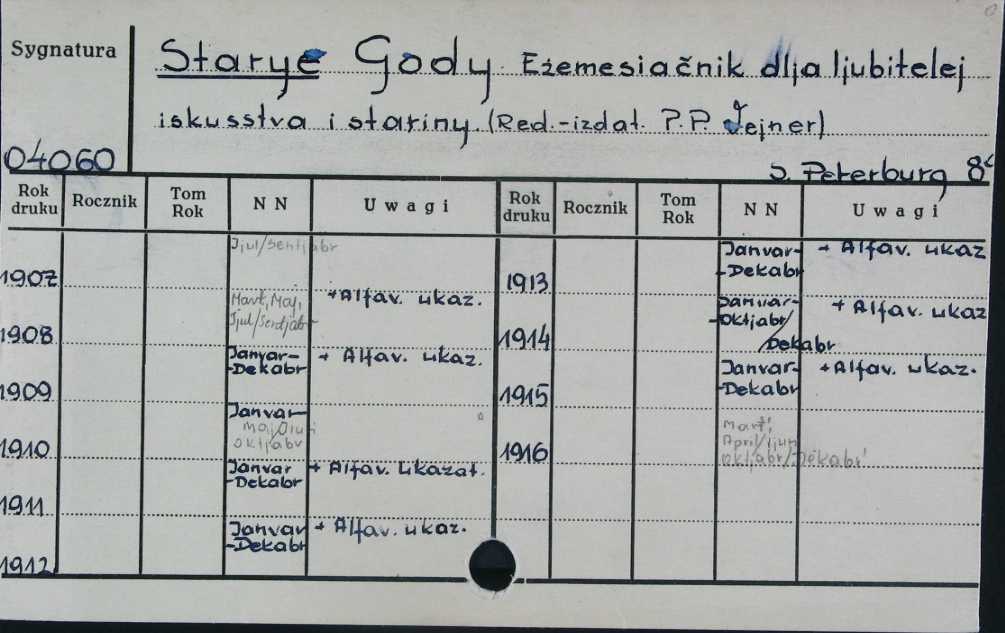 Sygnatura
Starye Gody Eżemesiačnik dlja ljubitelej
iskusstva i stariny (Red.-izdat. P.P. Vejner)
04060
S. Peterburg 8°
Rok druku Rocznik Tom Rok N N Uwagi Rok druku Rocznik Tom Rok N N Uwagi
1907 Ijul/Sentjabr
1908 Mart, Maj, Ijul/Sentjabr + Alfav. ukaz.
1909 Janvar--Dekabr + Alfav. ukaz.
1910 Janvar- Maj/Ijun oktjabr
1911 Janvar-Dekabr + Alfav. ukazat.
1912 Janvar-Dekabr + Alfav. ukaz.
1913 Janvar--Dekabr + Alfav. ukaz
1914 Janvar--Oktjabr/Dekabr + Alfav. ukaz
1915 Janvar--Dekabr + Alfav. ukaz.
1916 Mart, April/Ijun oktjabr/Dekabr